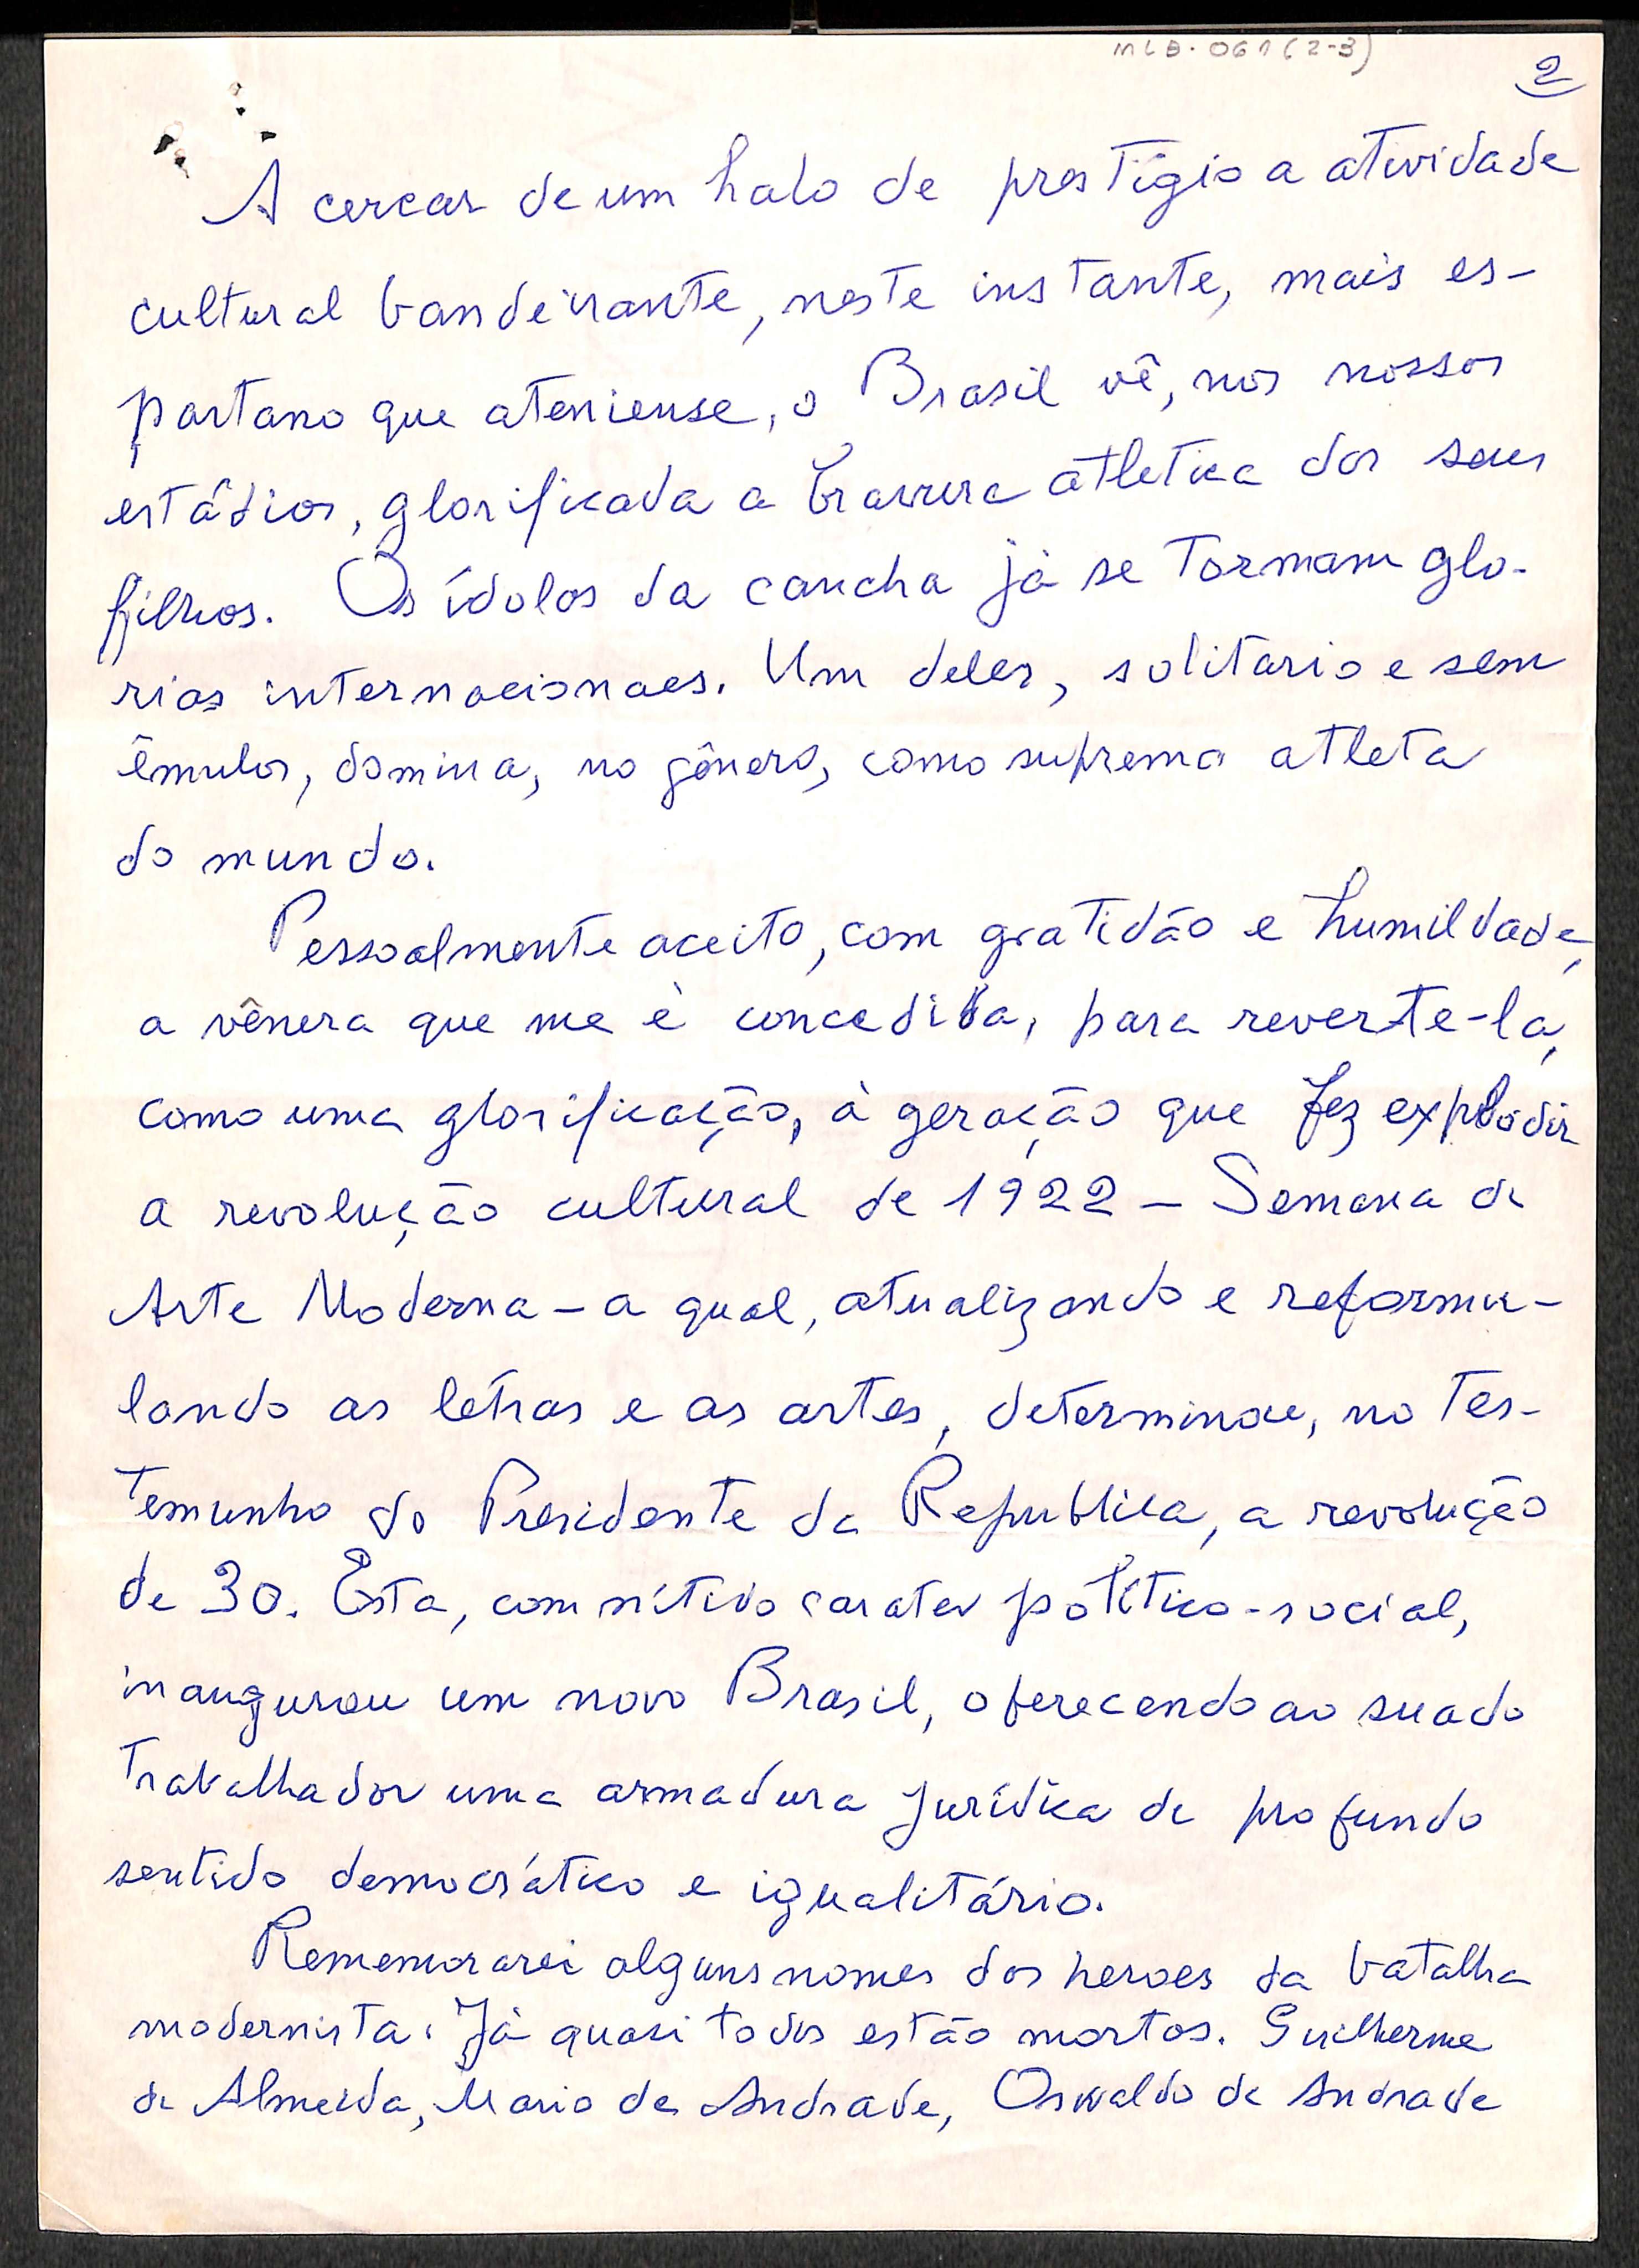 MLB. 061 (2-3)
2
A cercar de um halo de prestígio a atividade
cultural bandeirante, neste instante, mais es-
partano que ateniense, o Brasil vê, nos nossos
estádios, glorificada a bravura atletica dos seus
filhos. Os ídolos da cancha já se tornam gló-
rias internacionaes. Um deles, solitario e sem
êmulos, domina, no gênero, como suprema atleta
do mundo.
Pessoalmente aceito, com gratidão e humildade,
a vênera que me é concedida, para reverte-la,
como uma glorificação, à geração que fez explodir
a revolução cultural de 1922 – Semana de
Arte Moderna – a qual, atualizando e reformu-
lando as letras e as artes, determinou, no tes-
temunho do Presidente da Republica, a revolução
de 30. Esta, com nítido carater político-social,
inaugurou um novo Brasil, oferecendo ao suado
trabalhador uma armadura jurídica de profundo
sentido democrático e igualitário.
Rememorarei alguns nomes dos heroes da batalha
modernista. Já quasi todos estão mortos. Guilherme
de Almeida, Mario de Andrade, Oswaldo de Andrade